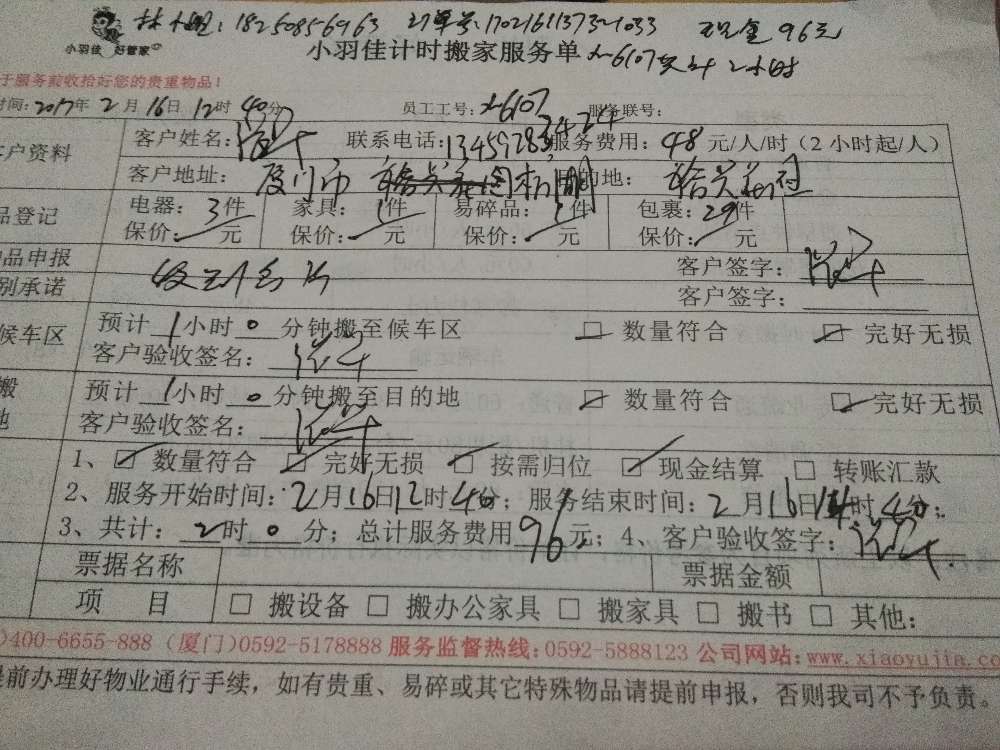 林小姐:18250856963 订单号:170216113731033 现金96元
小羽佳 好管家 小羽佳计时搬家服务单 x-6107 2小时
于服务前收拾好您的贵重物品!
时间:2017年2月16日12时40分 员工工号:x-6107 服务联号:
客户资料 客户姓名: 联系电话:13459283424 服务费用:48元/人/时(2小时起/人)
客户地址:厦门市 目的地:
品登记 电器:3件 家具:1件 易碎品:1件 包裹:29件
保价: 元 保价: 元 保价: 元 保价: 元
物品申报 客户签字:
别承诺 客户签字:
候车区 预计1小时0分钟搬至候车区 数量符合 完好无损
客户验收签名:
搬 预计1小时0分钟搬至目的地 数量符合 完好无损
地 客户验收签名:
1、数量符合 完好无损 按需归位 现金结算 转账汇款
2、服务开始时间:2月16日12时40分;服务结束时间:2月16日14时40分;
3、共计:2时0分;总计服务费用96元;4、客户验收签字:
票据名称 票据金额
项 目 搬设备 搬办公家具 搬家具 搬书 其他:
)400-6655-888 (厦门)0592-5178888 服务监督热线:0592-5888123 公司网站:www.xiaoyujia.co
提前办理好物业通行手续,如有贵重、易碎或其它特殊物品请提前申报,否则我司不予负责。